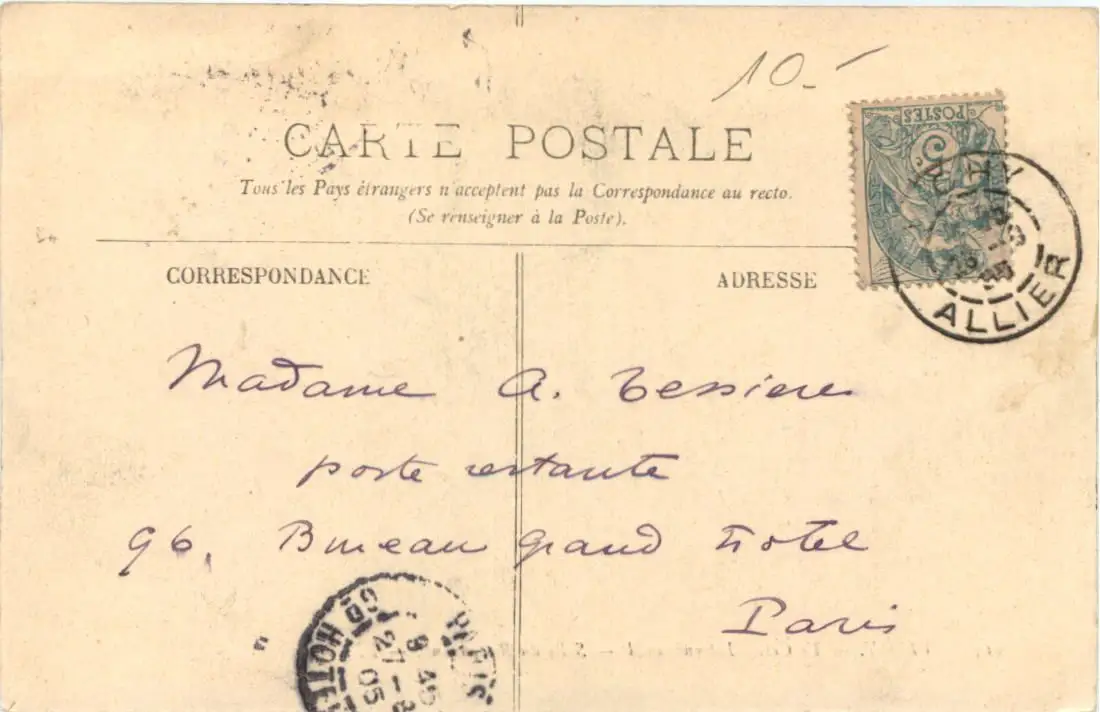 10.-
CARTE POSTALE
Tous les Pays étrangers n'acceptent pas la Correspondance au recto.
(Se renseigner à la Poste).
CORRESPONDANCE
ADRESSE
POSTES
5
ALLIER
05
Madame A. Tessieres
poste restante
96. Bureau grand Hotel
Paris
PARIS
GD HOTEL
9 45
27-8
05